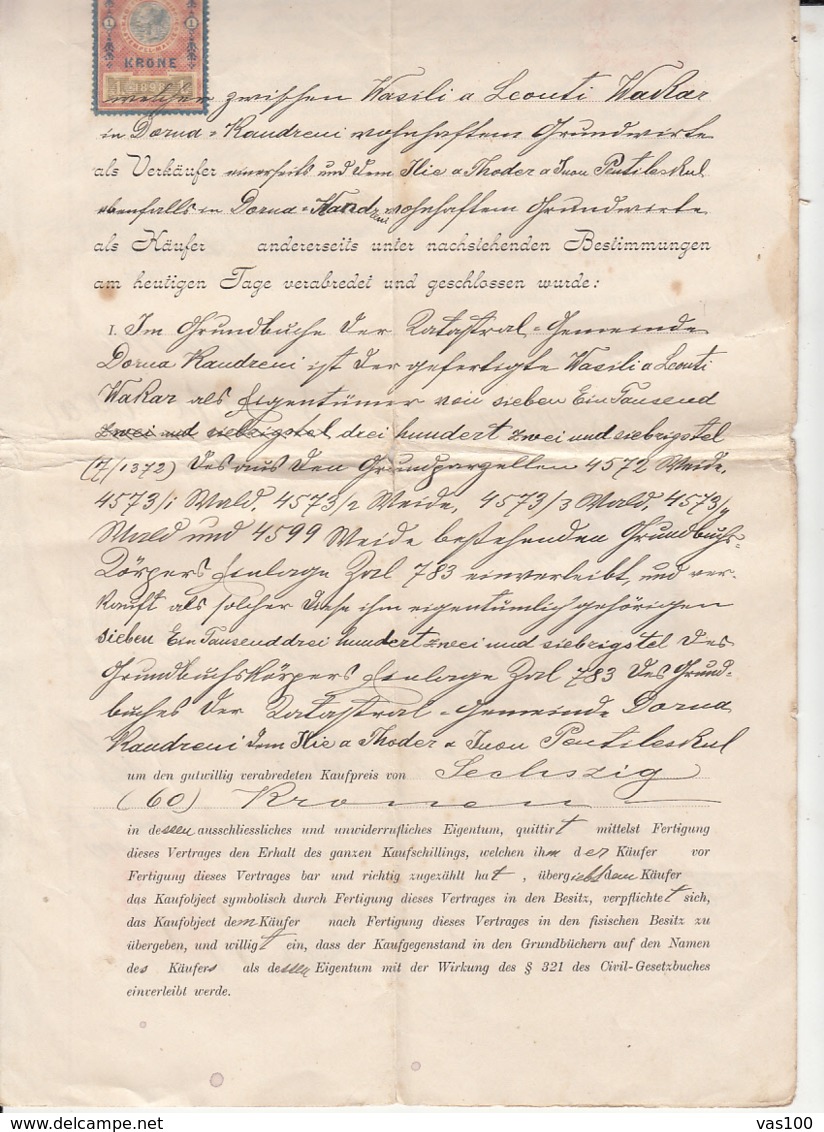 KRONE
1 1898 1
welcher zwischen Wasili a Leonti Wakar
in Dorna-Kandreni wohnhaftem Grundwirte
als Verkäufer einerseits und dem Ilie a Thoder a Iuon Pentileskul
ebenfalls in Dorna-Kandreni wohnhaftem Grundwirte
als Käufer andererseits unter nachstehenden Bestimmungen
am heutigen Tage verabredet und geschlossen wurde:
I. Im Grundbuche der Katastral-Gemeinde
Dorna Kandreni ist der gefertigte Wasili a Leonti
Wakar als Eigentümer von sieben Ein Tausend
zwei und siebzigstel drei hundert zwei und siebzigstel
(7/1372) des aus den Grundparzellen 4572 Weide,
4573/1 Wald, 4573/2 Weide, 4573/3 Wald, 4573/4
Wald und 4599 Weide bestehenden Grundbuchs-
Körpers Einlage Zal 783 einverleibt, und ver-
kauft als solcher diese ihm eigentümlich gehörigen
sieben Ein Tausend drei hundert zwei und siebzigstel des
Grundbuchskörpers Einlage Zal 783 des Grund-
buches der Katastral-Gemeinde Dorna
Kandreni dem Ilie a Thoder a Iuon Pentileskul
um den gutwillig verabredeten Kaufpreis von Sechszig
(60) Kronen
in dessen ausschliessliches und unwiderrufliches Eigentum, quittirt mittelst Fertigung
dieses Vertrages den Erhalt des ganzen Kaufschillings, welchen ihm der Käufer vor
Fertigung dieses Vertrages bar und richtig zugezählt hat, übergiebt dem Käufer
das Kaufobject symbolisch durch Fertigung dieses Vertrages in den Besitz, verpflichtet sich,
das Kaufobject dem Käufer nach Fertigung dieses Vertrages in den fisischen Besitz zu
übergeben, und willigt ein, dass der Kaufgegenstand in den Grundbüchern auf den Namen
des Käufers als dessen Eigentum mit der Wirkung des § 321 des Civil-Gesetzbuches
einverleibt werde.
vas100